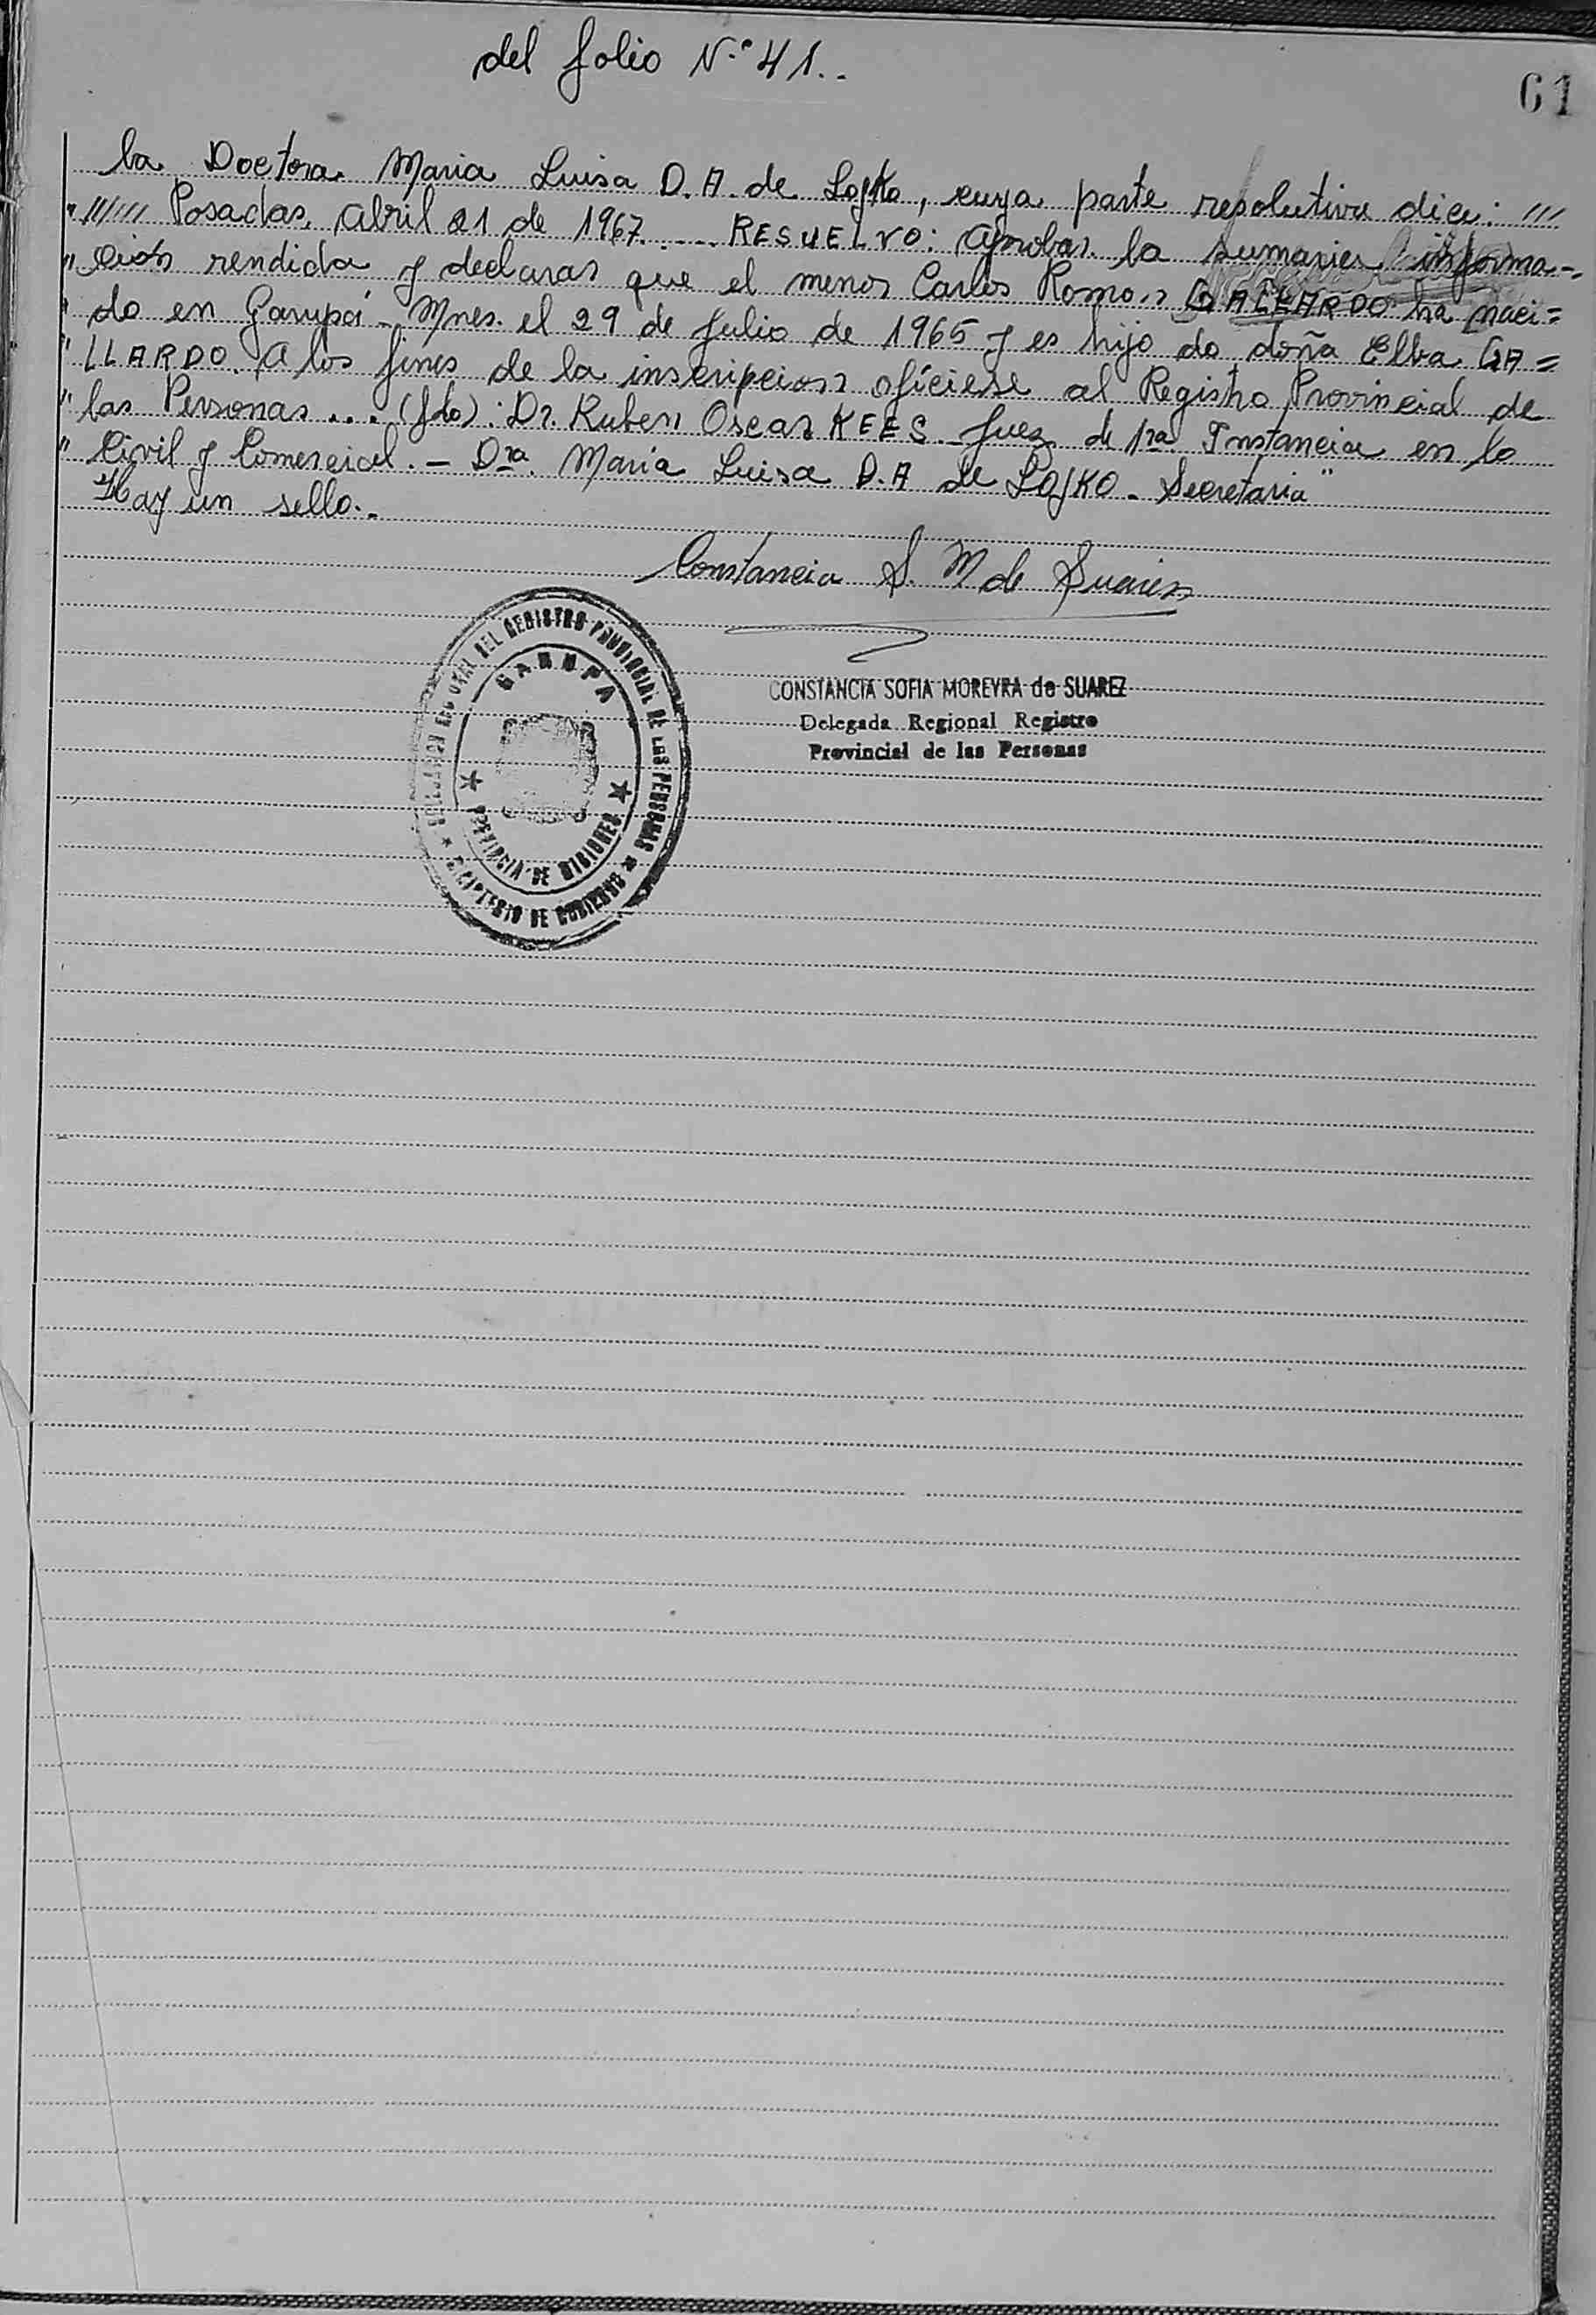 del folio N.º 41..
61
la Doctora Maria Luisa D. A. de Lojko, cuya parte resolutiva dice: ///
"////// Posadas, Abril 21 de 1967..... RESUELVO: Aprobar la sumaria informa-
" ción rendida y declarar que el menor Carlos Ramon GALLARDO ha naci=
" do en Garupá - Mnes. el 29 de Julio de 1965 y es hijo de doña Elba GA=
" LLARDO. A los fines de la inscripcion ofíciese al Registro Provincial de
" las Personas... (fdo): Dr. Ruben Oscar KEES - Juez de 1ra. Instancia en lo
" Civil y Comercial. - Dra. Maria Luisa D. A de LOJKO - Secretaria"
Hay un sello.-
Constancia S. M de Suarez
CONSTANCIA SOFIA MOREYRA de SUAREZ
Delegada Regional Registro
Provincial de las Personas
REGIONAL DEL REGISTRO PROVINCIAL DE LAS PERSONAS
GARUPA
PROVINCIA DE MISIONES
MINISTERIO DE GOBIERNO